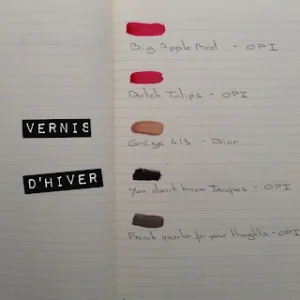 VERNIS
D'HIVER
Big Apple Red - OPI
Dutch Tulips - OPI
Grège 413 - Dior
You don't know Jacques - OPI
French quarter for your thoughts - OPI